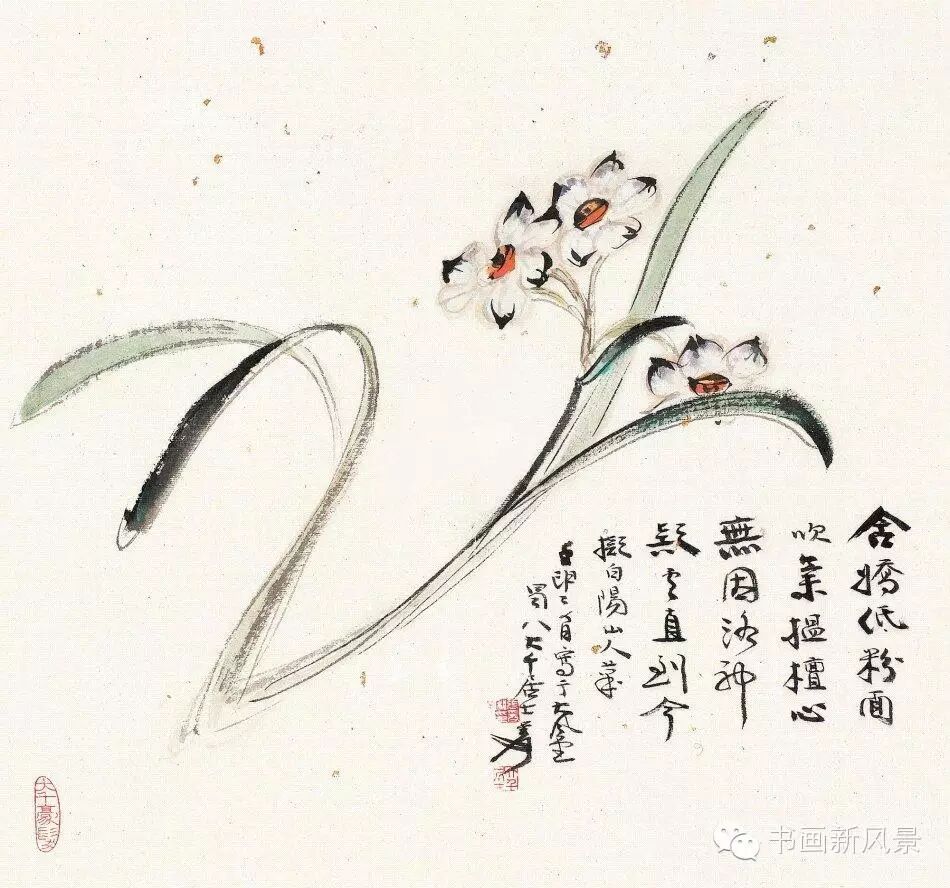 含嬌低粉面
吹葉搵檀心
無因洛神
直到今
擬白陽山人
寫于大風堂
蜀人大千居士爰
大千豪髮
书画新风景